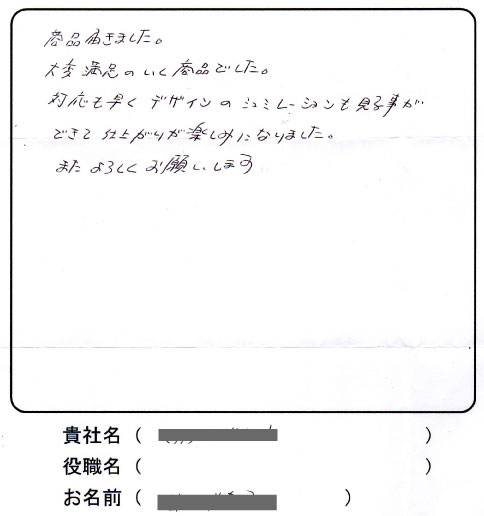 商品届きました。
大変満足のいく商品でした。
対応も早くデザインのシュミレーションも見る事が
できて仕上がりが楽しみになりました。
またよろしくお願いします
貴社名（　　　）
役職名（　　　）
お名前（　　　）